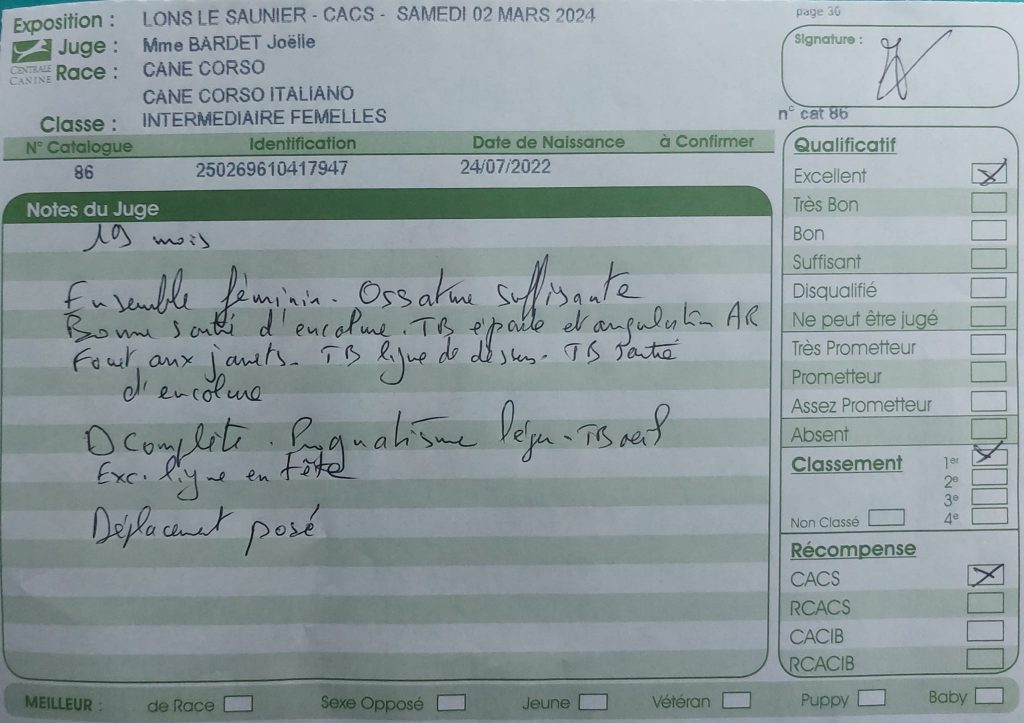 Exposition : LONS LE SAUNIER - CACS - SAMEDI 02 MARS 2024
page 30
CENTRALE CANINE
Juge : Mme BARDET Joëlle
Race : CANE CORSO
CANE CORSO ITALIANO
Classe : INTERMEDIAIRE FEMELLES
Signature :
n° cat 86
N° Catalogue Identification Date de Naissance à Confirmer
86 250269610417947 24/07/2022
Notes du Juge
19 mois
Ensemble féminin. Ossature suffisante
Bonne sortie d'encolure. TB épaule et angulation AR
Fouet aux jarrets. TB ligne de dessus. TB sortie
d'encolure
D complète. Prognatisme léger. TB oeil
Exc. ligne en tête
Déplacement posé
Qualificatif
Excellent
Très Bon
Bon
Suffisant
Disqualifié
Ne peut être jugé
Très Prometteur
Prometteur
Assez Prometteur
Absent
Classement 1er
2e
3e
Non Classé 4e
Récompense
CACS
RCACS
CACIB
RCACIB
MEILLEUR : de Race Sexe Opposé Jeune Vétéran Puppy Baby